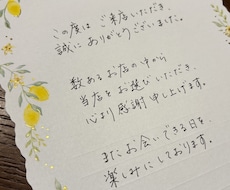 この度は ご来店いただき、
誠にありがとうございました。
数あるお店の中から
当店をお選びいただき、
心より感謝申し上げます。
またお会いできる日を、
楽しみにしております。